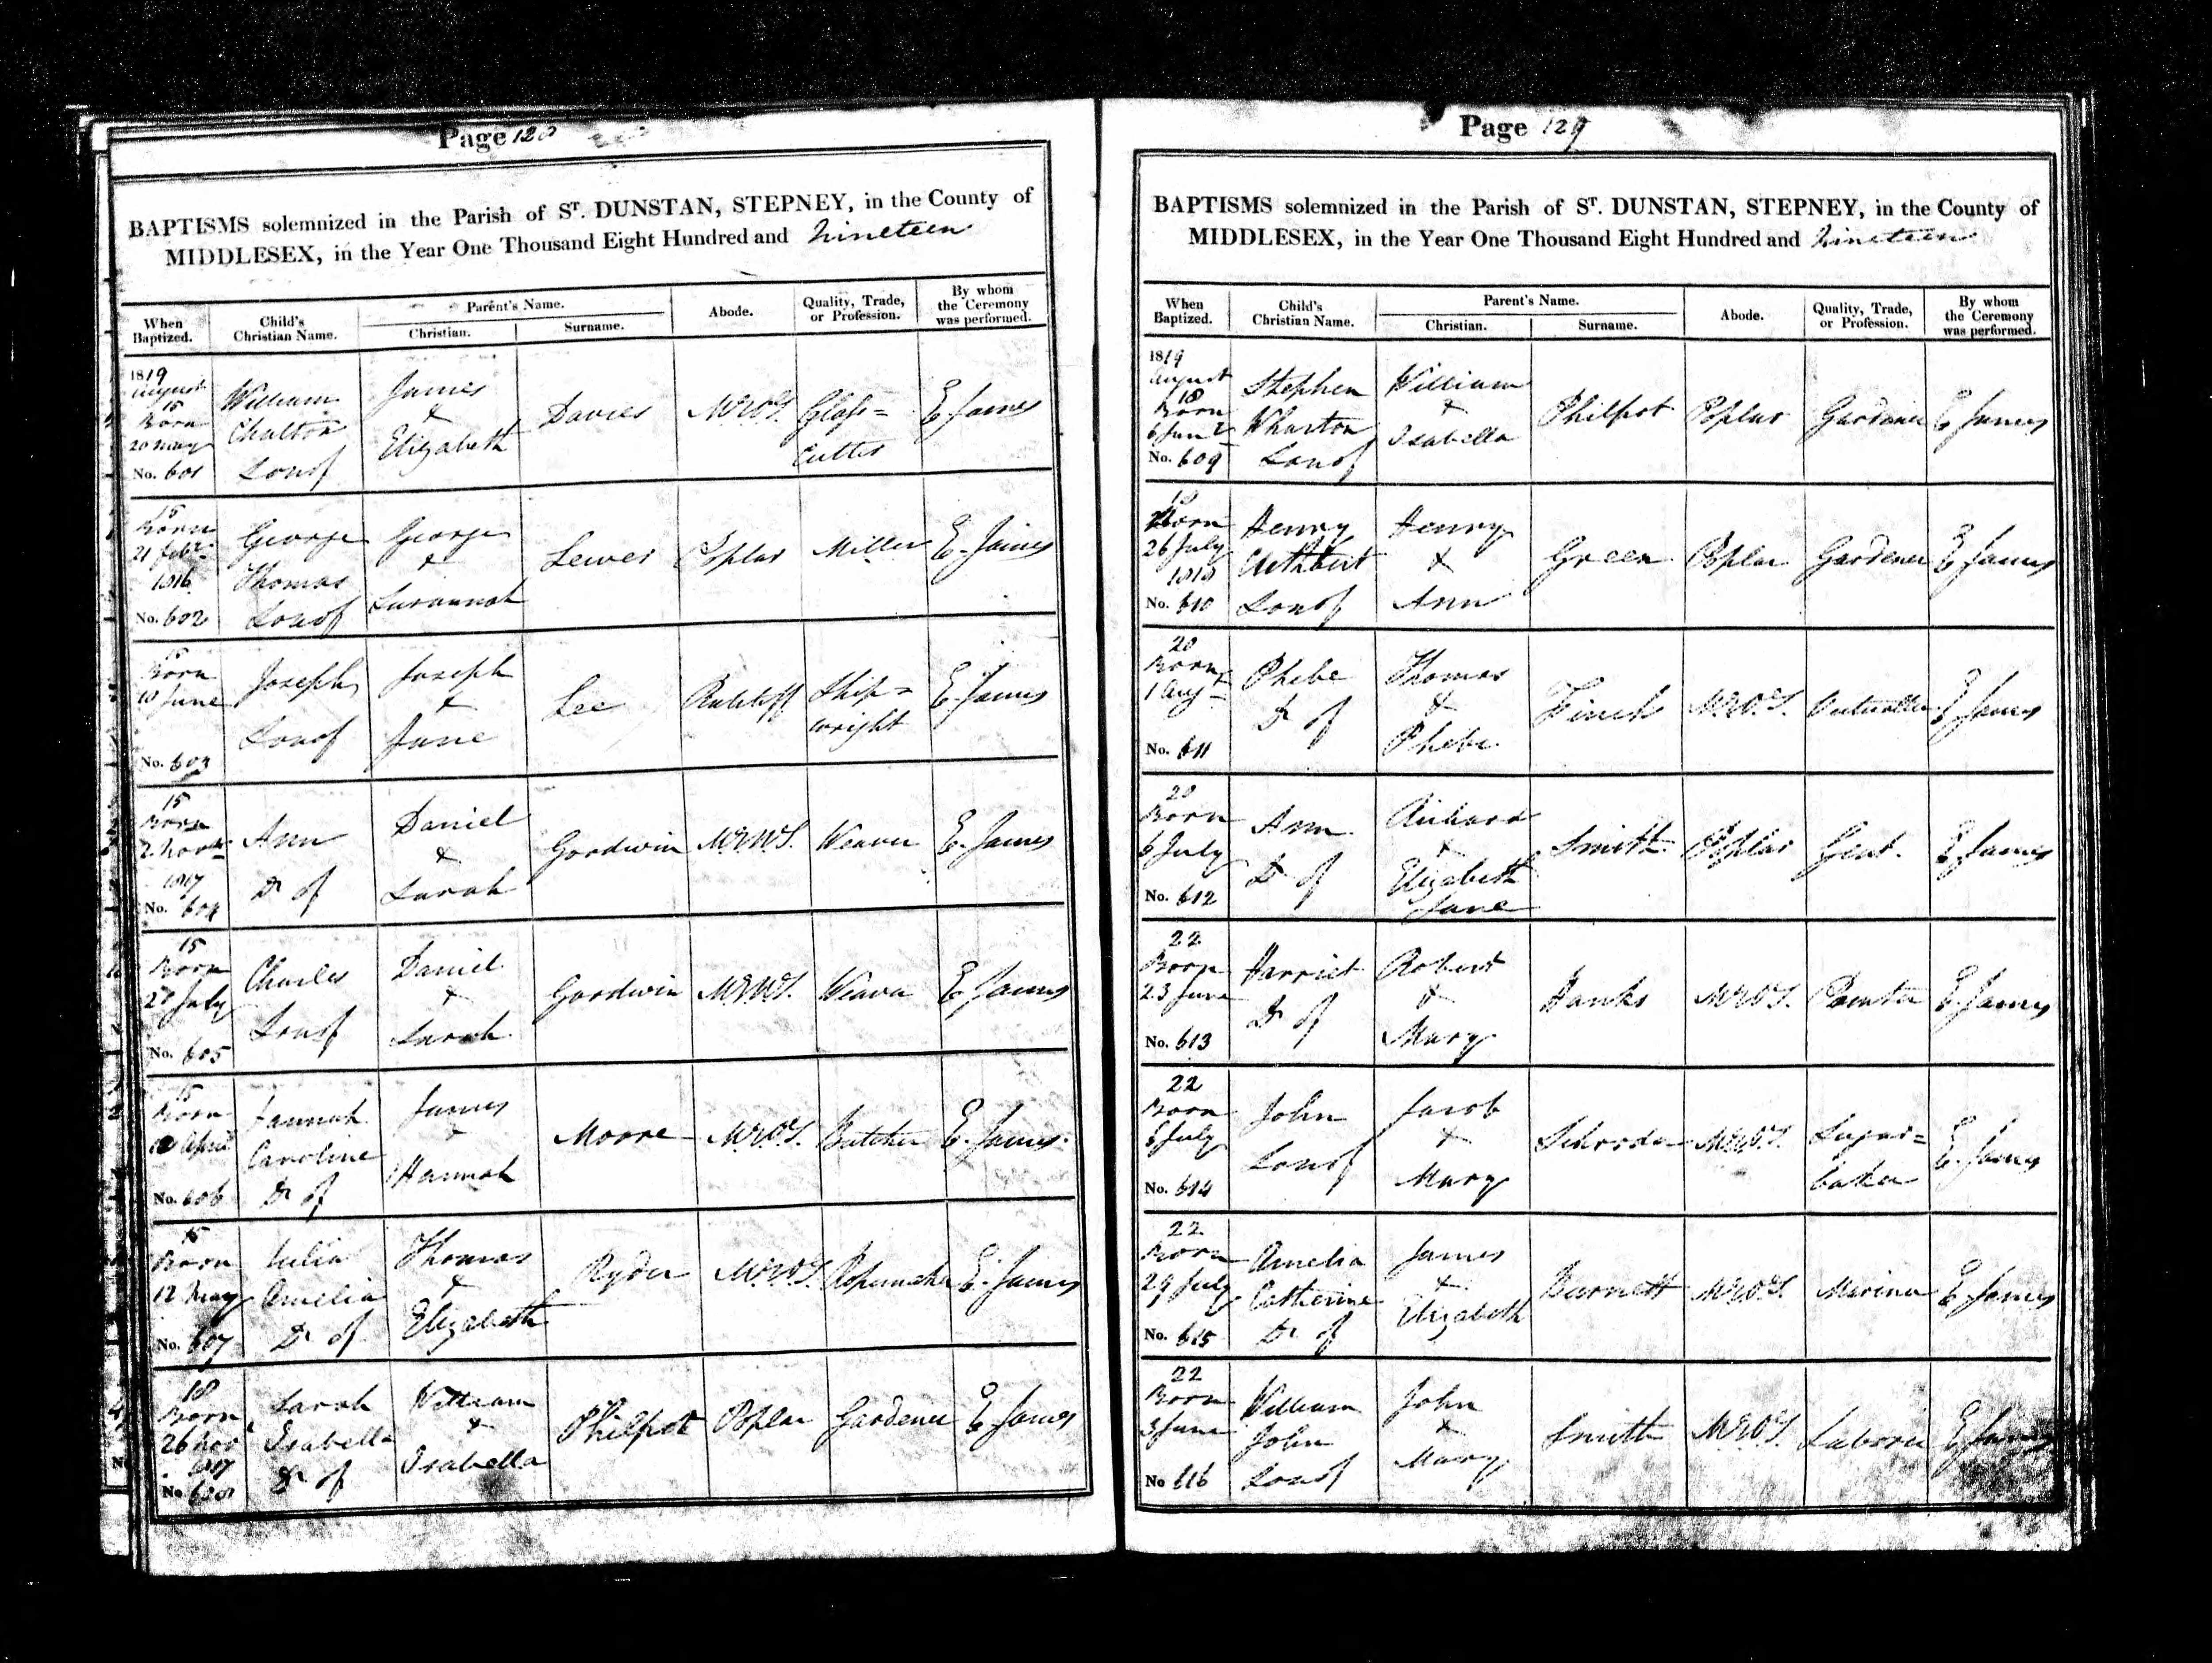 Page 128
BAPTISMS solemnized in the Parish of St. DUNSTAN, STEPNEY, in the County of
MIDDLESEX, in the Year One Thousand Eight Hundred and Nineteen
When Baptized. Child's Christian Name. Parent's Name. Christian. Surname. Abode. Quality, Trade, or Profession. By whom the Ceremony was performed.
1819 August 15 Born 20 May No. 601 William Charlton Son of James & Elizabeth Davies M.E.O.T. Glass=Cutter E. James
15 Born 21 Feby. 1816 No. 602 George Thomas Son of George & Susannah Lewer Poplar Miller E. James
15 Born 10 June No. 603 Joseph Son of Joseph & Jane Lee Ratcliff Ship=wright E. James
15 Born 2 Novr. 1817 No. 604 Ann Dr of Daniel & Sarah Goodwin Weaver E. James
15 Born July No. 605 Charles Son of Daniel & Sarah Goodwin Weaver E. James
15 Born April No. 606 Hannah Caroline Dr of James & Hannah Moore M.E.O.T. Butcher E. James
15 Born 12 May No. 607 Julia Amelia Dr of Thomas & Elizabeth Ryder M.E.O.T. Ropemaker E. James
18 Born 26 Nov 1817 No. 608 Sarah Isabella Dr of William & Isabella Philpot Poplar Gardener E. James
Page 129
BAPTISMS solemnized in the Parish of St. DUNSTAN, STEPNEY, in the County of
MIDDLESEX, in the Year One Thousand Eight Hundred and Nineteen
When Baptized. Child's Christian Name. Parent's Name. Christian. Surname. Abode. Quality, Trade, or Profession. By whom the Ceremony was performed.
1819 August 18 Born 6 June No. 609 Stephen Wharton Son of William & Isabella Philpot Poplar Gardener E. James
18 Born 26 July 1818 No. 610 Henry Cuthbert Son of Henry & Ann Green Poplar Gardener E. James
20 Born 1 Augt No. 611 Phebe Dr of Thomas & Phebe Finch M.E.O.T. Victualler E. James
20 Born 6 July No. 612 Ann Dr of Richard & Elizabeth Jane Smith Poplar Gent. E. James
22 Born 23 June No. 613 Harriet Dr of Robert & Mary Hanks M.E.O.T. Painter E. James
22 Born July No. 614 John Son of Jacob & Mary Schroder M.E.O.T. Sugar=baker E. James
22 Born 29 July No. 615 Amelia Catherine Dr of James & Elizabeth Burnett M.E.O.T. Mariner E. James
22 Born 3 June No 616 William John Son of John & Mary Smith M.E.O.T. Laborer E. James